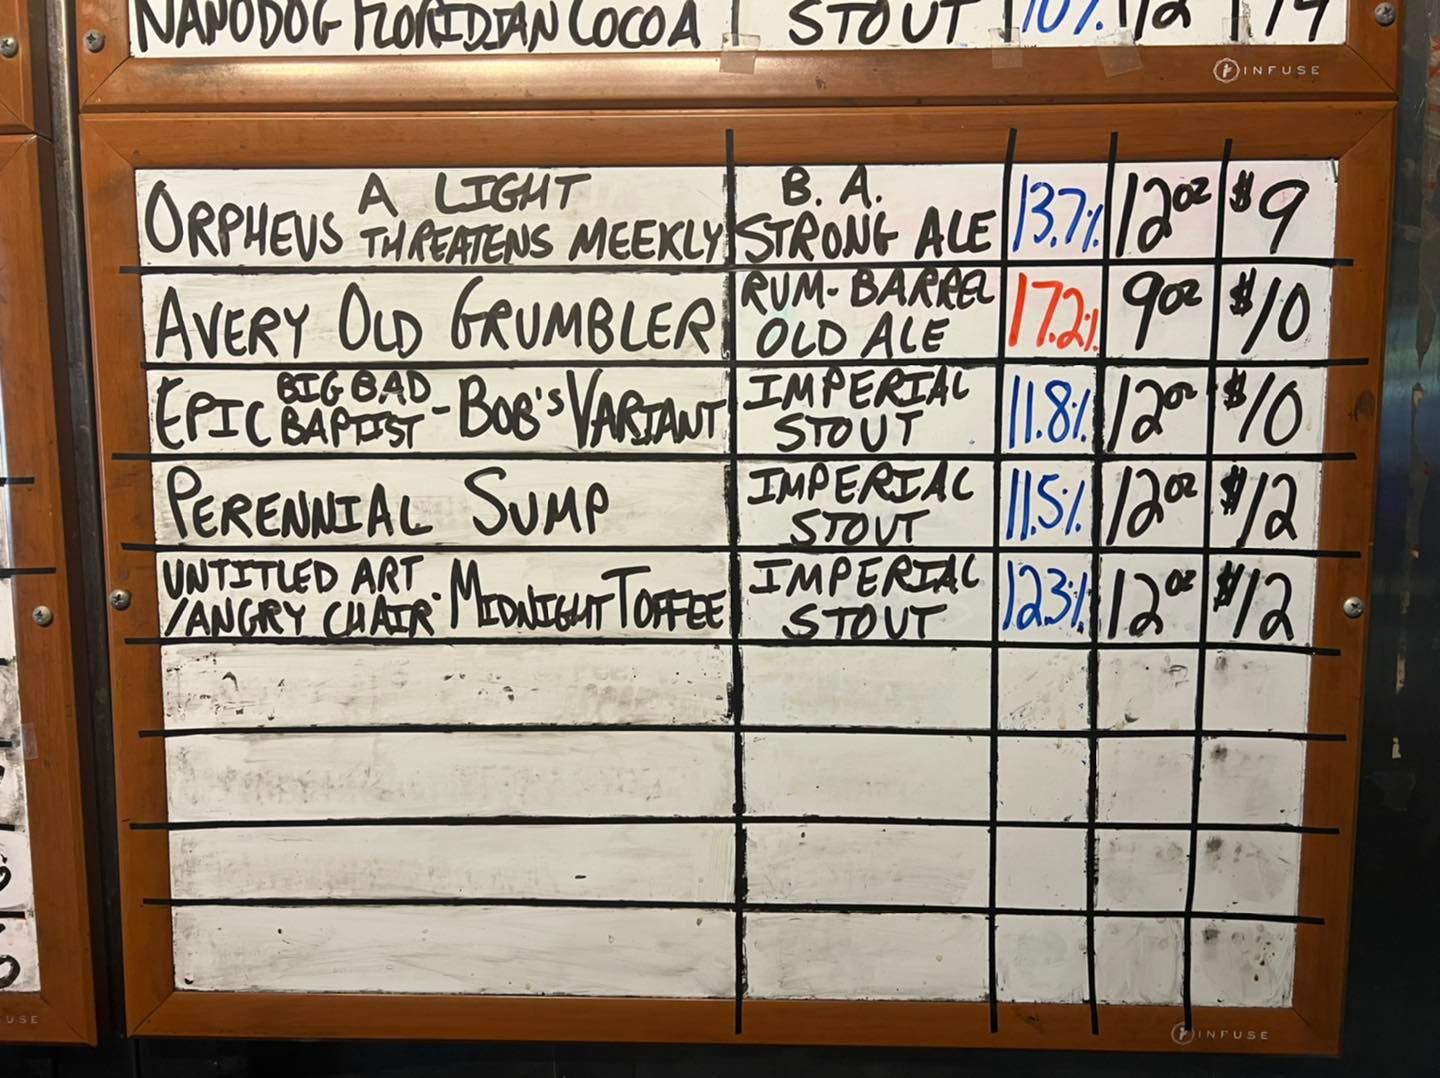 NANODOG FLORIDIAN COCOA STOUT 10% 12
INFUSE
ORPHEUS A LIGHT THREATENS MEEKLY B. A. STRONG ALE 13.7% 12oz $9
AVERY OLD GRUMBLER RUM-BARREL OLD ALE 17.2% 9oz $10
EPIC BIG BAD BAPTIST - BOB'S VARIANT IMPERIAL STOUT 11.8% 12oz $10
PERENNIAL SUMP IMPERIAL STOUT 11.5% 12oz $12
UNTITLED ART /ANGRY CHAIR - MIDNIGHT TOFFEE IMPERIAL STOUT 12.3% 12oz $12
INFUSE
USE